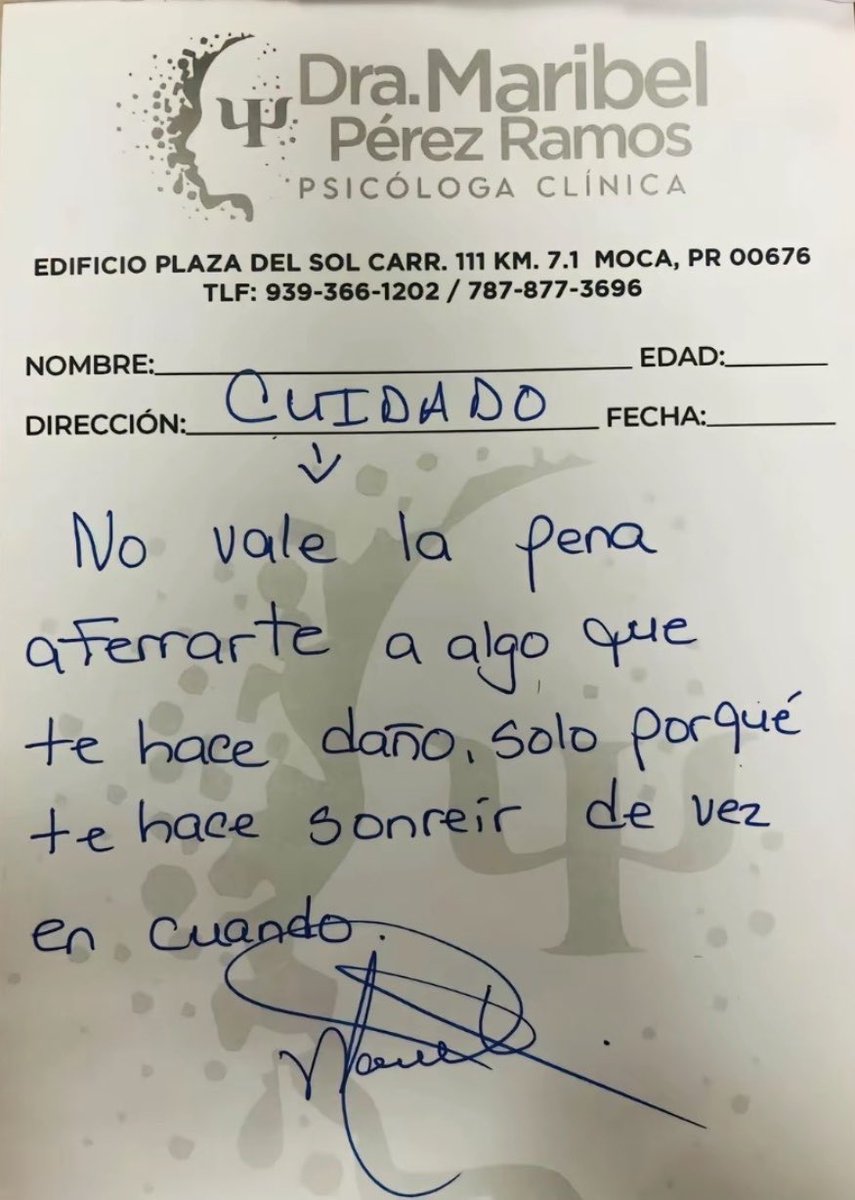 Dra. Maribel
Pérez Ramos
PSICÓLOGA CLÍNICA
EDIFICIO PLAZA DEL SOL CARR. 111 KM. 7.1 MOCA, PR 00676
TLF: 939-366-1202 / 787-877-3696
NOMBRE: EDAD:
DIRECCIÓN: CUIDADO FECHA:
No vale la pena
aferrarte a algo que
te hace daño, solo porqué
te hace sonreír de vez
en cuando.